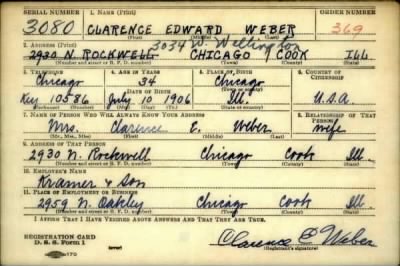 SERIAL NUMBER 1. NAME (Print) ORDER NUMBER
3080 CLARENCE EDWARD WEBER 369
(First) (Middle) (Last)
3034 W. Wellington
2. ADDRESS (Print)
2930 N. ROCKWELL CHICAGO COOK ILL
(Number and street or R. F. D. number) (Town) (County) (State)
3. TELEPHONE 4. AGE IN YEARS 5. PLACE OF BIRTH 6. COUNTRY OF CITIZENSHIP
Chicago 34 Chicago
DATE OF BIRTH (Town or county)
Key 10586 July 10 1906 Ill. U.S.A.
(Exchange) (Number) (Mo.) (Day) (Yr.) (State or country)
7. NAME OF PERSON WHO WILL ALWAYS KNOW YOUR ADDRESS 8. RELATIONSHIP OF THAT PERSON
Mrs. Clarence E. Weber wife
(Mr., Mrs., Miss) (First) (Middle) (Last)
9. ADDRESS OF THAT PERSON
2930 N. Rockwell Chicago Cook Ill.
(Number and street or R. F. D. number) (Town) (County) (State)
10. EMPLOYER'S NAME
Kramer & Son
11. PLACE OF EMPLOYMENT OR BUSINESS
2959 N. Oakley Chicago Cook Ill.
(Number and street or R. F. D. number) (Town) (County) (State)
I AFFIRM THAT I HAVE VERIFIED ABOVE ANSWERS AND THAT THEY ARE TRUE.
REGISTRATION CARD
D. S. S. Form 1 (over) Clarence E Weber
(Registrant's signature)